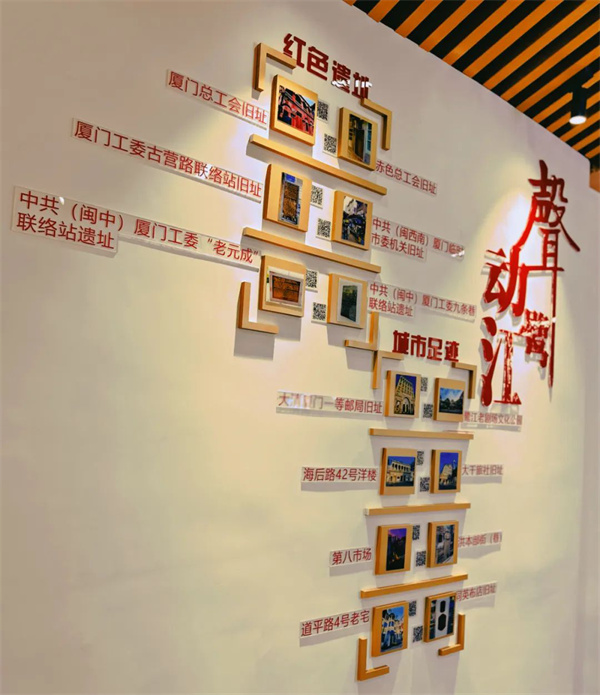 红色遗址
厦门总工会旧址
赤色总工会旧址
厦门工委古营路联络站旧址
中共（闽西南）厦门临时
市委机关旧址
中共（闽中）厦门工委“老元成”
联络站遗址
中共（闽中）厦门工委九条巷
联络站遗址
聲动
鹭江
城市足迹
门一等邮局旧址
鹭江老剧场文化公园
海后路42号洋楼
大千旅社旧址
第八市场
洪本部街（巷）
道平路4号老宅
布店旧址